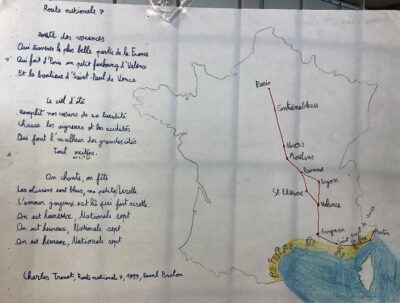 Route nationale 7
Route des vacances
Qui traverse la plus belle partie de la France
Qui fait d'Paris un petit faubourg d'Valence
Et la banlieue d'Saint-Paul de Vence
Le ciel d'été
Remplit nos cœurs de sa lucidité
Chasse les aigreurs et les acidités
Qui font l'malheur des grandes cités
Tout excitées
On chante, on fête
Les oliviers sont bleus, ma petite Lisette
L'amour joyeux est là qui fait risette
On est heureux Nationale sept
On est heureux, Nationale sept
On est heureux, Nationale sept
Charles Trenet, Route nationale 7, 1955, Raoul Breton
Paris
Fontainebleau
Nevers
Moulins
Roanne
Lyon
St Etienne
Valence
Avignon
Saint Paul de Vence
Menton